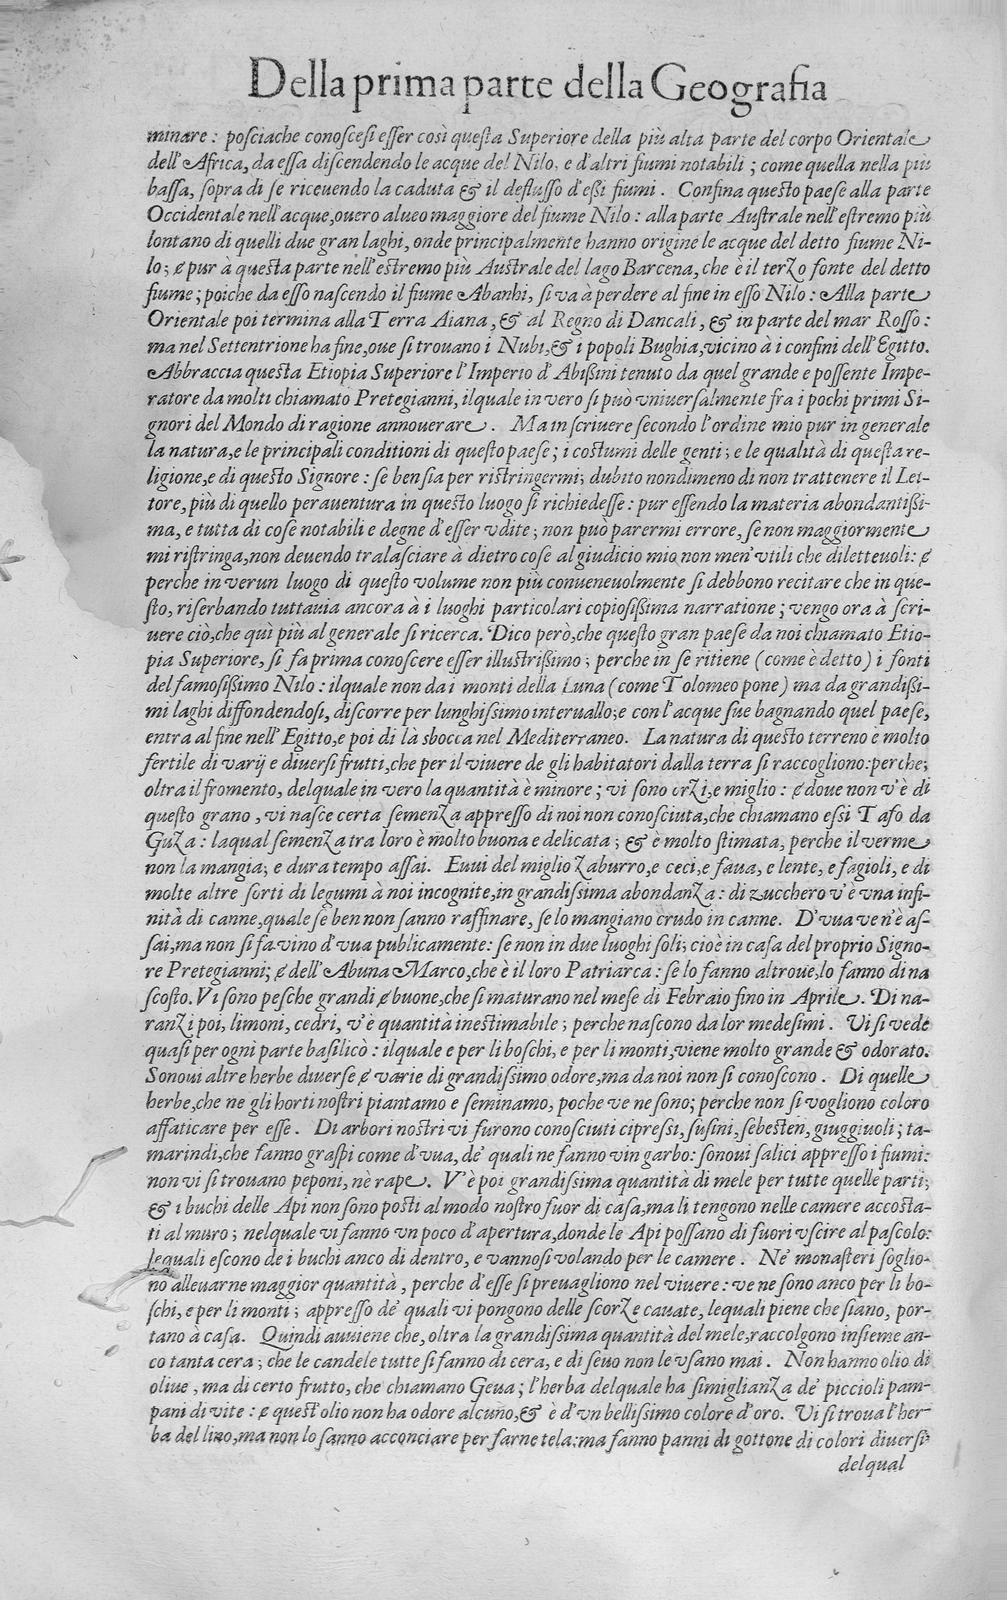 Della prima parte della Geografia
minare: posciache conoscesi esser così questa Superiore della più alta parte del corpo Orientale
dell'Africa, da essa discendendo le acque del Nilo, e d'altri fiumi notabili; come quella nella più
bassa, sopra di se riceuendo la caduta & il deflusso d'essi fiumi. Confina questo paese alla parte
Occidentale nell'acque, ouero alueo maggiore del fiume Nilo: alla parte Australe nell'estremo più
lontano di quelli due gran laghi, onde principalmente hanno origine le acque del detto fiume Ni-
lo; & pur à questa parte nell'estremo più Australe del lago Barcena, che è il terzo fonte del detto
fiume; poiche da esso nascendo il fiume Abanhi, si va à perdere al fine in esso Nilo: Alla parte
Orientale poi termina alla Terra Aiana, & al Regno di Dancali, & in parte del mar Rosso:
ma nel Settentrione ha fine, oue si trouano i Nubi, & i popoli Bughia, vicino à i confini dell'Egitto.
Abbraccia questa Etiopia Superiore l'Imperio d'Abissini tenuto da quel grande e possente Impe-
ratore da molti chiamato Pretegianni, ilquale in vero si può vniuersalmente fra i pochi primi Si-
gnori del Mondo di ragione annouerare. Ma in scriuere secondo l'ordine mio pur in generale
la natura, e le principali conditioni di questo paese; i costumi delle genti; e le qualità di questa re-
ligione, e di questo Signore: se ben sia per ristringermi; dubito nondimeno di non trattenere il Let-
tore, più di quello perauentura in questo luogo si richiedesse: pur essendo la materia abondantissi-
ma, e tutta di cose notabili e degne d'esser vdite; non può parermi errore, se non maggiormente
mi ristringa, non deuendo tralasciare à dietro cose al giudicio mio non men'vtili che diletteuoli: &
perche in verun luogo di questo volume non più conueneuolmente si debbono recitare che in que-
sto, riserbando tuttauia ancora à i luoghi particolari copiosissima narratione; vengo ora à scri-
uere ciò, che quì più al generale si ricerca. Dico però, che questo gran paese da noi chiamato Etio-
pia Superiore, si fa prima conoscere esser illustrissimo; perche in se ritiene (come è detto) i fonti
del famosissimo Nilo: ilquale non da i monti della Luna (come Tolomeo pone) ma da grandissi-
mi laghi diffondendosi, discorre per lunghissimo interuallo; e con l'acque sue bagnando quel paese,
entra al fine nell'Egitto, e poi di là sbocca nel Mediterraneo. La natura di questo terreno è molto
fertile di varij e diuersi frutti, che per il viuere de gli habitatori dalla terra si raccogliono: perche;
oltra il fromento, delquale in vero la quantità è minore; vi sono orzi, e miglio: & doue non v'è di
questo grano, vi nasce certa semenza appresso di noi non conosciuta, che chiamano essi Tafo da
Guza: laqual semenza tra loro è molto buona e delicata; & è molto stimata, perche il verme
non la mangia; e dura tempo assai. Euui del miglio zaburro, e ceci, e faua, e lente, e fagioli, e di
molte altre sorti di legumi à noi incognite, in grandissima abondanza: di zucchero v'è vna infi-
nità di canne, quale se ben non sanno raffinare, se lo mangiano crudo in canne. D'vua ve n'è as-
sai, ma non si fa vino d'vua publicamente: se non in due luoghi soli; cioè in casa del proprio Signo-
re Pretegianni; & dell'Abuna Marco, che è il loro Patriarca: se lo fanno altroue, lo fanno di na
scosto. Vi sono pesche grandi & buone, che si maturano nel mese di Febraio fino in Aprile. Di na-
ranzi poi, limoni, cedri, v'è quantità inestimabile; perche nascono da lor medesimi. Vi si vede
quasi per ogni parte basilicò: ilquale e per li boschi, e per li monti, viene molto grande & odorato.
Sonoui altre herbe diuerse & varie di grandissimo odore, ma da noi non si conoscono. Di quelle
herbe, che ne gli horti nostri piantamo e seminamo, poche ve ne sono; perche non si vogliono coloro
affaticare per esse. Di arbori nostri vi furono conosciuti cipressi, susini, sebesten, giuggiuoli; ta-
marindi, che fanno graspi come d'vua, de' quali ne fanno vin garbo: sonoui salici appresso i fiumi:
non vi si trouano peponi, nè rape. V'è poi grandissima quantità di mele per tutte quelle parti;
& i buchi delle Api non sono posti al modo nostro fuor di casa, ma li tengono nelle camere accosta-
ti al muro; nelquale vi fanno vn poco d'apertura, donde le Api possano di fuori vscire al pascolo:
lequali escono de i buchi anco di dentro, e vannosi volando per le camere. Ne' monasteri soglio-
no alleuarne maggior quantità, perche d'esse si preuagliono nel viuere: ve ne sono anco per li bo-
schi, e per li monti; appresso de' quali vi pongono delle scorze cauate, lequali piene che siano, por-
tano à casa. Quindi auuiene che, oltra la grandissima quantità del mele, raccolgono insieme an-
co tanta cera; che le candele tutte si fanno di cera, e di seuo non le vsano mai. Non hanno olio di
oliue, ma di certo frutto, che chiamano Geua; l'herba delquale ha simiglianza de' piccioli pam-
pani di vite: & quest'olio non ha odore alcuno, & è d'vn bellissimo colore d'oro. Vi si troua l'her-
ba del lino, ma non lo sanno acconciare per farne tela: ma fanno panni di gottone di colori diuersi
delqual